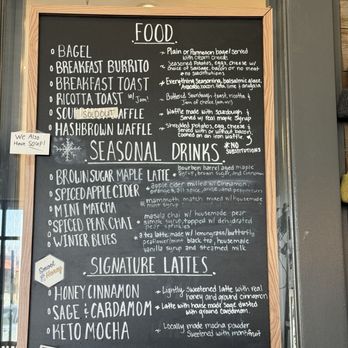 FOOD
BAGEL → Plain or Parmesan bagel served
with cream cheese
BREAKFAST BURRITO → Seasoned Potatoes, eggs, cheese w/
choice of sausage, bacon or no meat
no substitutions
BREAKFAST TOAST → Everything seasoning, balsamic glaze,
avocado, bacon, feta, lime &
RICOTTA TOAST w/ Jam! → Buttered Sourdough toast, ricotta &
Jam of choice
WAFFLE → Waffle made with sourdough &
Served w/ real maple syrup
HASHBROWN WAFFLE → Shredded potatoes, egg, cheese &
served with or without bacon,
cooked on an iron waffle
* NO
SUBSTITUTIONS
We Also
Have SOUP!
SEASONAL DRINKS
BROWN SUGAR MAPLE LATTE → bourbon barrel aged maple
syrup, brown sugar, and cinnamon
SPICED APPLE CIDER → apple cider mulled w/ cinnamon,
MINI MATCHA → mammoth match mixed w/ housemade
mint syrup
SPICED PEAR CHAI → masala chai w/ housemade pear
simple syrup, topped w/ dehydrated
pear
WINTER BLUES → a tea latte made w/ lemongrass/butterfly
peaflower/mint black tea, housemade
vanilla syrup and steamed milk
SIGNATURE LATTES
Honey
HONEY CINNAMON → Lightly Sweetened latte with real
honey and ground cinnamon
SAGE & CARDAMOM → Latte with house made sage dusted
with ground cardamom.
KETO MOCHA → Locally made mocha powder
Sweetened with monkfruit